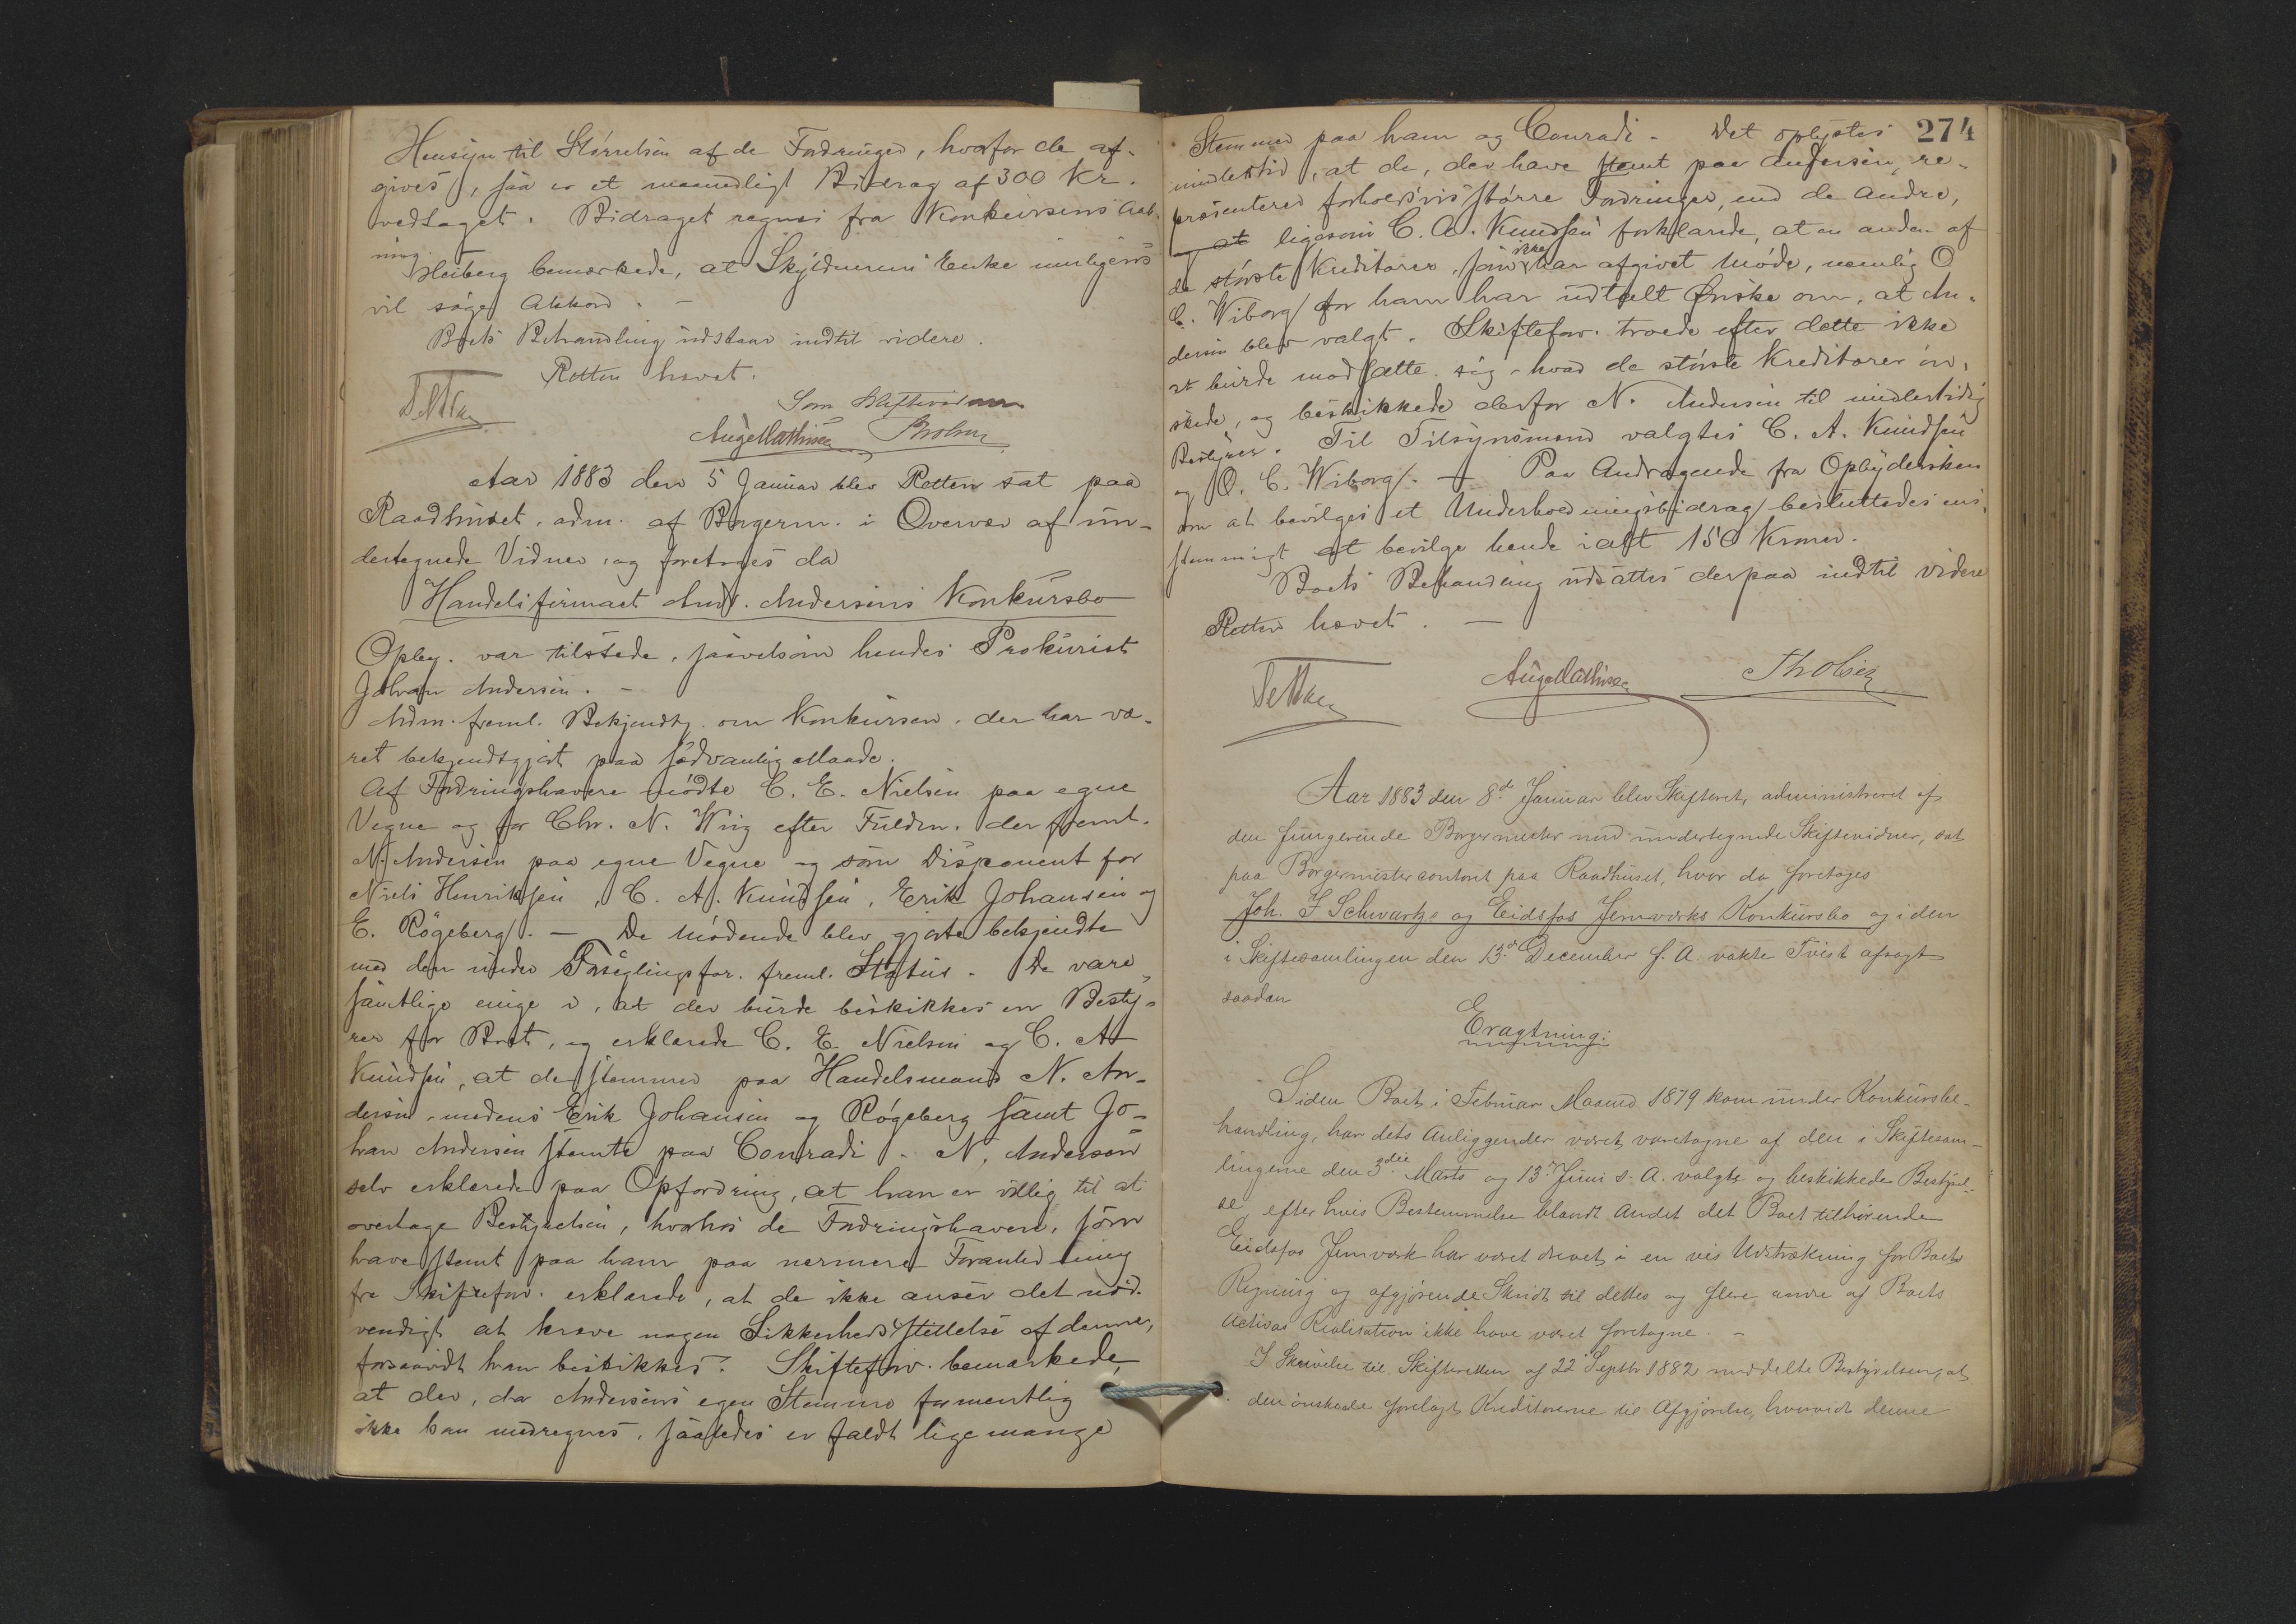 Hensyn til Størrelsen af de Fordringer, hvorfor de af-
gives, saa er et maanedligt Bidrag af 300 Kr.
vedtaget. Bidraget regnes fra Konkursens Aab-
ning.
Heiberg bemærkede, at Skyldnerens Enke muligens
vil søge Akkord. –
Boets Behandling udstaar indtil videre.
Retten hævet.
Som Skiftevidner
Aug Mathisen
Aar 1883 den 5 Januar blev Retten sat paa
Raadhuset, adm. af Borgerm. i Overvær af un-
dertegnede Vidner, og foretoges da
Handelsfirmaet And. Andersens Konkursbo
Opby. var tilstede, saavelsom hendes Prokurist
Johan Andersen. –
Adm. freml. Bekjendtg. om Konkursen, der har væ-
ret bekjendtgjort paa sædvanlig Maade.
Af Fordringshavere mødte C. E. Nielsen paa egne
Vegne og for Chr. N. Wiig efter Fuldm. der freml.
N. Andersen paa egne Vegne og som Disponent for
Niels Henriksen, C. A. Knudsen, Erik Johansen og
E. Røgeberg. – De mødende blev gjorte bekjendte
med den under Forseglingsfor. freml. Status. De vare
samtlige enige i, at der burde beskikkes en Besty-
rer for Boet, og erklærede C. E. Nielsen og C. A
Knudsen, at de stemmer paa Handelsmand N. An-
dersen, medens Erik Johansen og Røgeberg samt Jo-
han Andersen stemte paa Conradi. N. Andersen
selv erklærede paa Opfordring, at han er villig til at
overtage Bestyrelsen, hvorhos de Fordringshavere, som
have stemt paa ham paa nærmere Foranledning
fra Skiftefor. erklærede, at de ikke anser det nød-
vendigt at kræve nogen Sikkerhedsstillelse af denne,
forsaavidt han beskikkes. Skiftefor. bemærkede,
at der, da Andersens egen Stemme formentlig
ikke kan medregnes, saaledes er faldt lige mange
274
Stemmer paa ham og Conradi. Det oplystes
imidlertid, at de, der have stemt paa Andersen, re-
præsenterer forholdsvis større Fordringer, end de andre,
at ligesom C. A. Knudsen forklarede, at en anden af
de største Kreditorer, som ikke har afgivet Møde, nemlig O
C. Wiborg for ham har udtalt Ønske om, at An-
dersen blev valgt. Skiftefor. troede efter dette ikke
at burde modsætte sig, hvad de største Kreditorer øn-
skede, og beskikkede derfor N. Andersen til midlertidig
Bestyrer. Til Tilsynsmænd valgtes C. A. Knudsen
og O. C. Wiborg. – Paa Andragende fra Opbydersken
om at bevilges et Underholdningsbidrag besluttedes ens-
stemmigt at bevilge hende ialt 150 Kroner.
Boets Behandling udsattes derpaa indtil videre
Retten hævet. –
Aug Mathisen Th Olsen
Aar 1883 den 8de Januar blev Skifteret, administreret af
den fungerende Borgermester med undertegnede Skiftevidner, sat
paa Borgermestercontoret paa Raadhuset, hvor da foretoges
Joh. F Schwartz og Eidsfos Jernværks Konkursbo og i den
i Skiftesamlingen den 13de December f. A. vakte Tvist afsagt
saadan
Eragtning:
Siden Boet i Februar Maaned 1879 kom under Konkursbe-
handling, har dets Anliggender været varetagne af den i Skiftesam-
lingerne den 3die Marts og 13de Juni s. A. valgte og beskikkede Bestyrel-
se, efter hvis Bestemmelse blandt Andet det Boet tilhørende
Eidsfos Jernværk har været drevet i en vis Udstrækning for Boets
Regning og afgjørende Skridt til dettes og flere andre af Boets
Activas Realisation ikke have været foretagne. –
I Skrivelse til Skifteretten af 22 Septbr 1882 meddelte Bestyrelsen, at
den ønskede forelagt Kreditorerne til Afgjørelse, hvorvidt denne